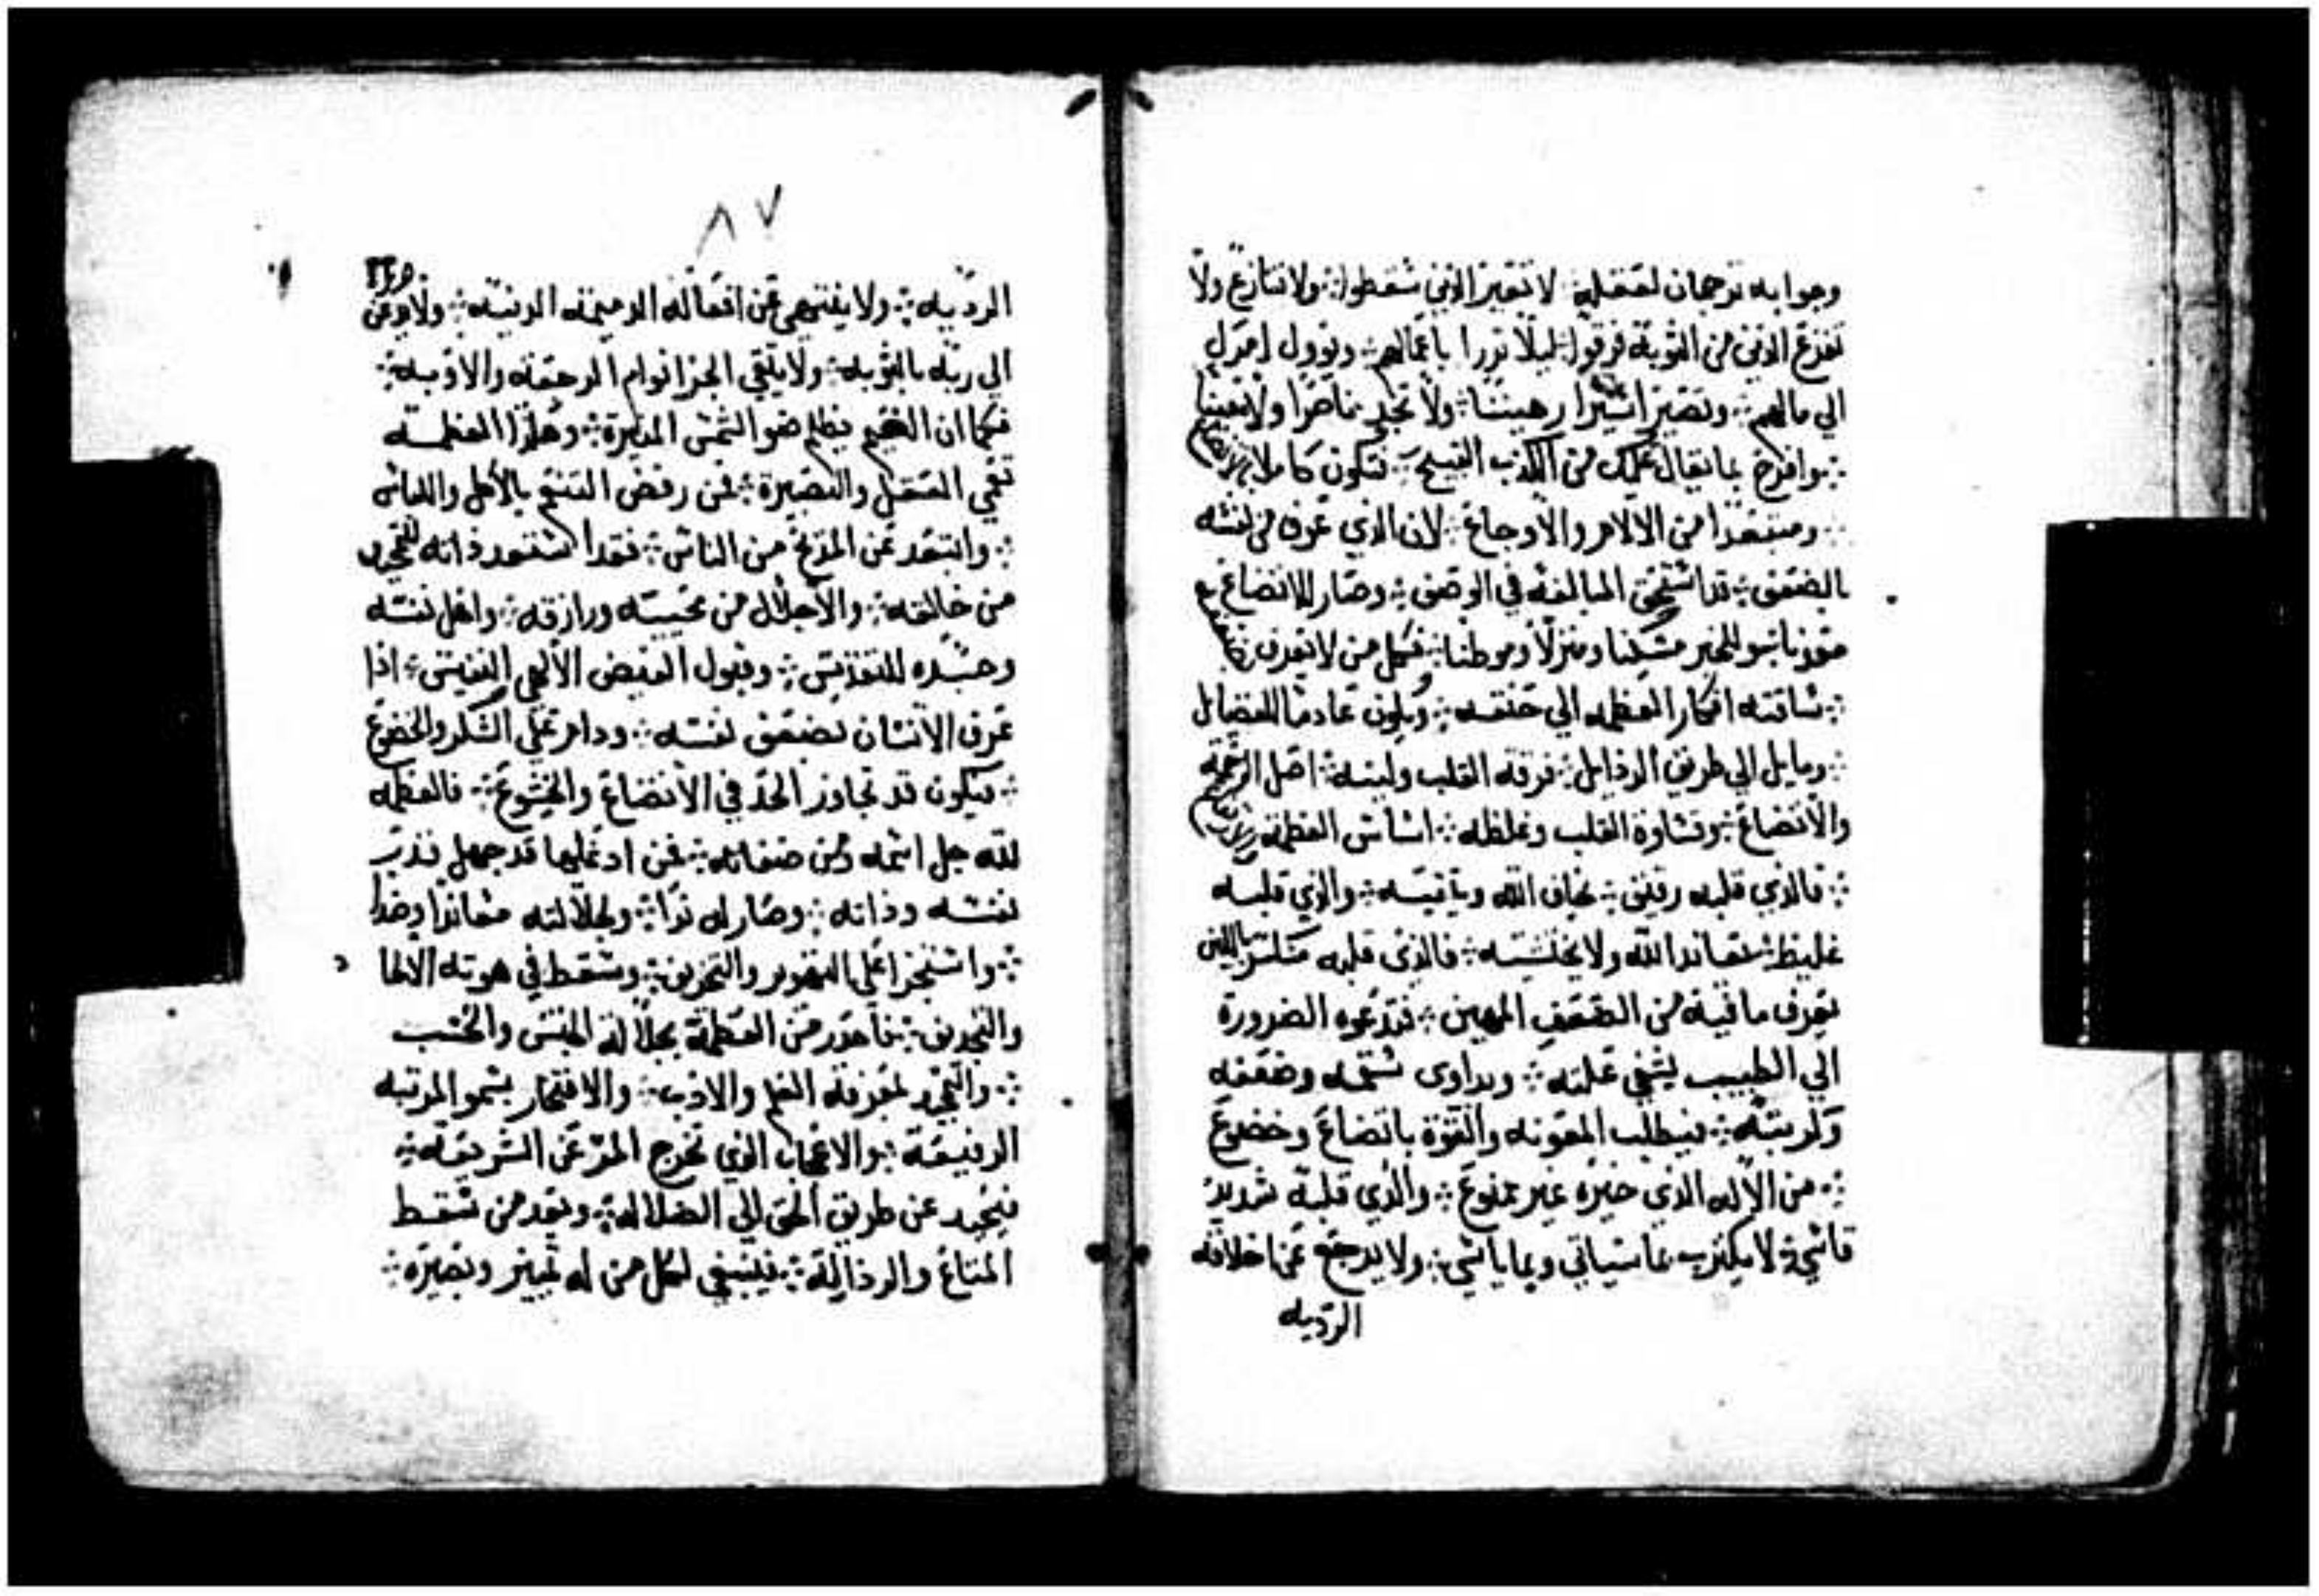 وجوابه ترجمان لعقله ܀ لا تعير الذين سقطوا ܀ ولا تنازع ولا
تفزع الذين من التوبة فرقوا ܀ ليلا تزرا باعمالهم ܀ ويوول امرك
الي مالهم ܀ وتصير اسيرا رهيننا ܀ ولا تجد ناصرا ولا معينا
܀ وافرح بما يقال عنك من الكذب القبيح ܀ فتكون كاملا
܀ ومبتعدا من الالام والاوجاع ܀ لان الذي عرف من نفسه
بالضعف ܀ قد استحق المبالغه في الوصف ܀ وصار للاتضاع
مسكنا ومنزلا وموطنا ܀ فكل من لا يعرف
܀ ساقته افكار العظمه الي حتفه ܀ ويكون عادما للفضايل
܀ ومايل الي طريق الرذايل ܀ فرقة القلب ولينه ܀ اصل الرحمة
والاتضاع ܀ وقساوة القلب وغلظه ܀ اساس العظمة
܀ فالذي قلبه رقيق ܀ يخاف الله ويتقيه ܀ والذي قلبه
غليظ ܀ يعاند الله ولا يخشيه ܀ فالذي قلبه
يعرف ما فيه من الضعف المهين ܀ فتدعوه الضرورة
الي الطبيب يشفي علته ܀ ويداوى سقمه وضعفه
܀ فيطلب المعونه والقوة باتضاع وخضوع
܀ من الاله الذي خيره غير ممنوع ܀ والذي قلبه شديد
قاسي ܀ لا يكترث بما سياتي وبما ياسي ܀ ولا يرجع عن اخلاقه
الرديه
٨٧
الرديه ܀ ولا ينتهي عن افعاله الدميمه الدنيه ܀ ولا
الي ربه بالتوبه ܀ ولا يلقي الجزا الرحمه والاوبه ܀
فكما ان الغيم يظلم ضو الشمس المنيرة ܀ وهكذا العظمه
تعمي العقل والبصيرة ܀ فمن رفض التنعم بالأكل واللباس
܀ وابتعد عن المدح من الناس ܀ فقد استعد ذاته للتمجيد
من خالقه ܀ والاجلال من محييه ورازقه ܀ واهل نفسه
وجسده للتقديس ܀ وقبول الفيض الالهي النفيس ܀ اذا
عرف الانسان بضعف نفسه ܀ ودام علي الشكر والخضوع
܀ فيكون قد تجاوز الحد في الاتضاع والخشوع ܀ فالعظمه
لله جل اسمه ومن صفاته ܀ فمن ادعاها قد جهل قدر
نفسه وذاته ܀ وصار له ندا ܀ ولجلالته معاندا وضدا
܀ وسقط في هوته
والتجديف ܀ العظمة بجلالة الجنس والحسب
܀ والتمجد لمعرفة العلم والادب ܀ والافتخار بسمو المرتبه
الرفيعة ܀ والاعجاب الذي يخرج المرؤ عن الشريعة ܀
فيحيد عن طريق الحق الي الضلاله ܀ ويعد من سقط
المتاع والرذالة ܀ فينبغي لكل من له تمييز وبصيره ܀